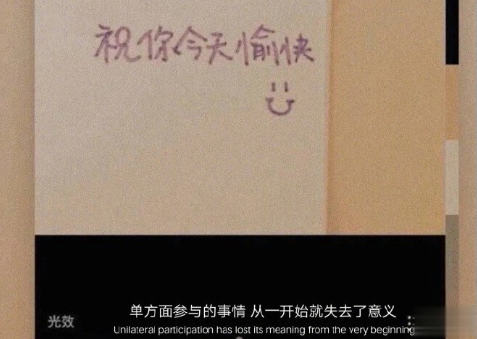 祝你今天愉快
光效
单方面参与的事情 从一开始就失去了意义
Unilateral participation has lost its meaning from the very beginning